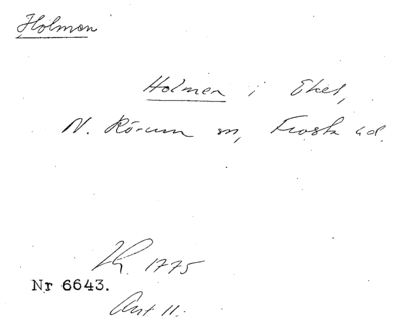 Holmen
Holmen i Ekel,
N. Rörum sn, Frosta hd.
1775
Nr 6643.
Ant 11.